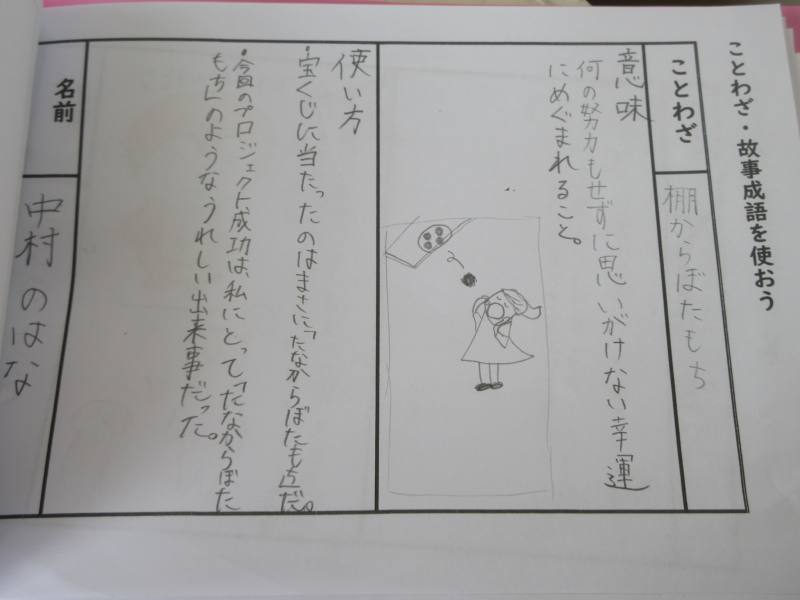 ことわざ・故事成語を使おう
ことわざ
棚からぼたもち
意味
何の努力もせずに思いがけない幸運
にめぐまれること。
使い方
・宝くじに当たったのはまさに「たなからぼたもち」だ。
・今回のプロジェクト成功は、私にとって「たなからぼた
もち」のようなうれしい出来事だった。
名前
中村 のはな